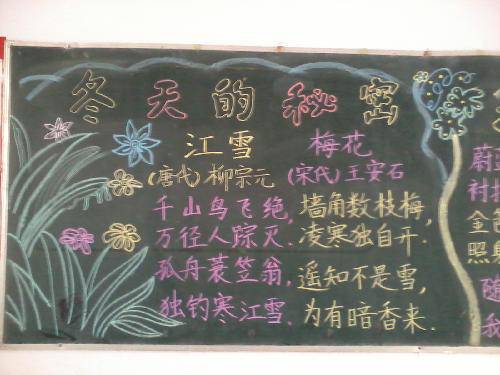 冬天的秘密
江雪
(唐代)柳宗元
千山鸟飞绝,
万径人踪灭.
孤舟蓑笠翁,
独钓寒江雪.
梅花
(宋代)王安石
墙角数枝梅,
凌寒独自开.
遥知不是雪,
为有暗香来.
蔚蓝
衬托
金色
照射
随
我